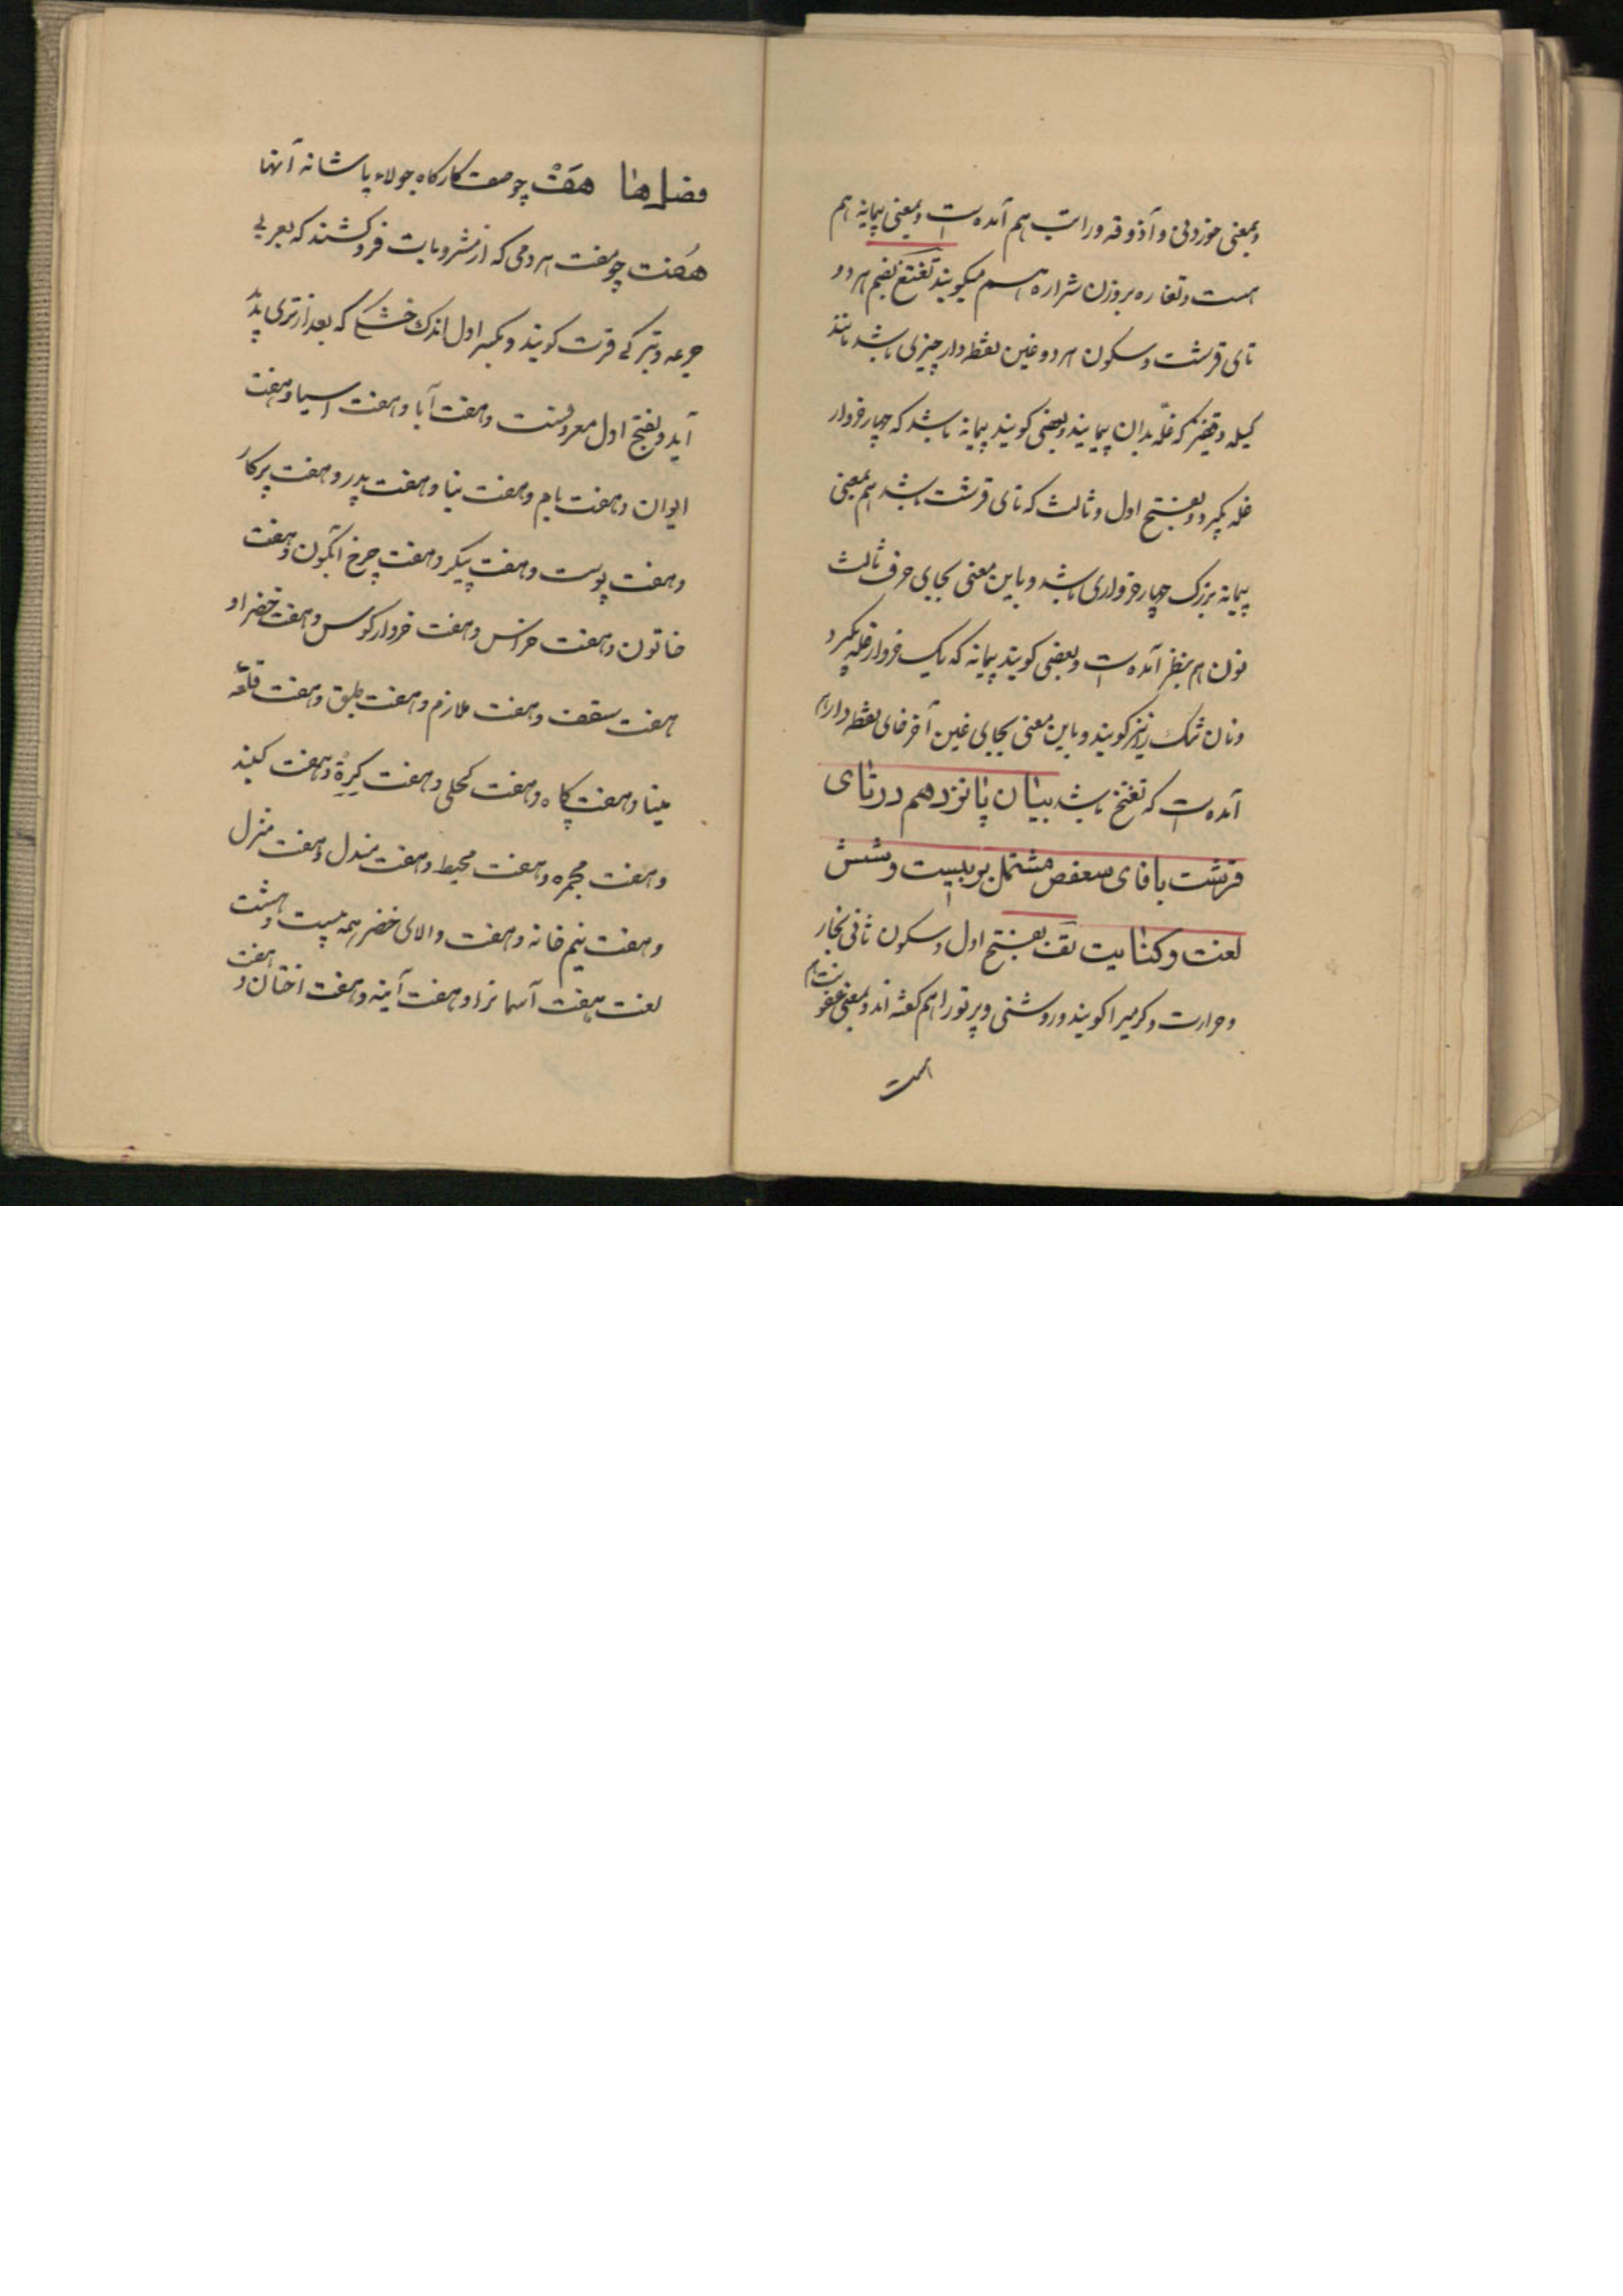 وبمعنی خوردنی و آذوقه و راتب هم آمده است وبمعنی پیمانه هم
هست وتغاره بروزن شراره هم میگویند تغتغ بضم هر دو
تای قرشت وسکون هر دو غین نقطه دار چیزی باشد مانند
کیله وقفیز که غلّه بدان پیمایند وبعضی گویند پیمانه باشد که چهار خروار
غله گیرد وبفتح اول وثالث که تای قرشت باشد هم بمعنی
پیمانه بزرگ چهار خرواری باشد وباین معنی بجای حرف ثالث
نون هم بنظر آمده است وبعضی گویند پیمانه که یک خروار غله گیرد
ونان تنک را نیز گویند وباین معنی بجای غین آخر خای نقطه دار هم
آمده است که تغتخ باشد بیان پانزدهم در تای
قرشت با فای سعفص مشتمل بر بیست وشش
لغت وکنایت تف بفتح اول وسکون ثانی بخار
وحرارت وگرمی را گویند وروشنی وپرتو را هم گفته اند وبمعنی عفونت هم
هست
فصل ها هَفْ چو صف کارگاه جولاه یا شانه آنها
هُفت چو مفت هر دمی که از مشروبات فرو کشند که بعربی
جرعه وترکی قرت گویند وبکسر اول اندک خشکی که بعد از تری پدید
آید وبفتح اول معروفست وهفت آبا وهفت آسیا وهفت
ایوان وهفت بام وهفت بنا وهفت پدر وهفت پرگار
وهفت پوست وهفت پیکر وهفت چرخ آبگون وهفت
خاتون وهفت حراس وهفت خروار کوس وهفت خضرا و
هفت سقف وهفت طارم وهفت طبق وهفت قلعه
مینا وهفت کاه وهفت کحلی وهفت کِرِهٔ وهفت گنبد
وهفت مجمره وهفت محیط وهفت مندل وهفت منزل
وهفت نیم خانه وهفت والای خضر همه بیست وهشت
لغت هفت آسمانراو هفت آینه وهفت اختان و هفت